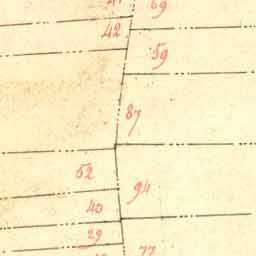 69
42
59
87
52
94
40
29
77